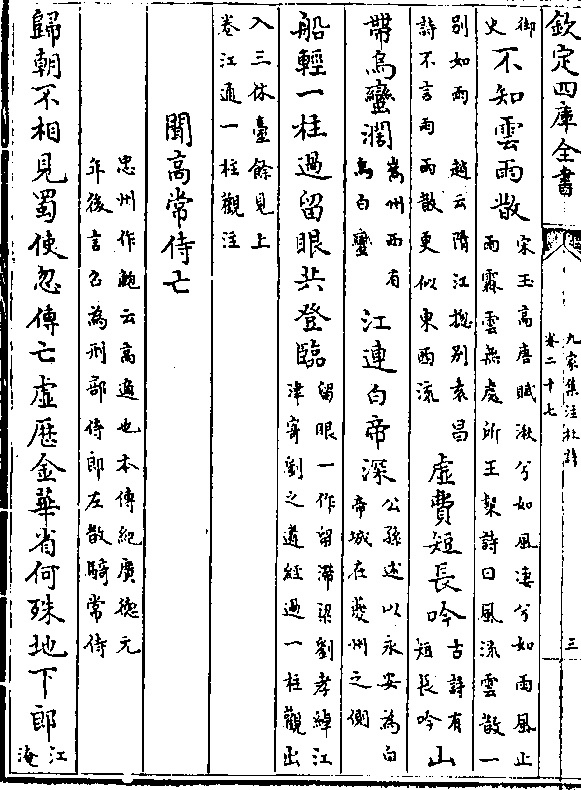 欽定四庫全書
九家集注杜詩
卷二十七
三
御
史
不知雲雨散
宋玉高唐賦湫兮如風淒兮如雨風止
雨霽雲無處所王粲詩曰風流雲散一
別如雨 趙云隋江摠別袁昌
詩不言雨雨散更似東西流
虛費短長吟
古詩有
短長吟
山
帶烏蠻濶
嶲州西有
烏白蠻
江連白帝深
公孫述以永安為白
帝城在夔州之側
船輕一柱過留眼共登臨
留眼一作留滯梁劉孝綽江
津寄劉之遴經過一柱觀出
入三休臺餘見上
卷江通一柱觀注
聞高常侍亡
忠州作鮑云高適也本傳紀廣徳元
年後言召為刑部侍郎左散騎常侍
歸朝不相見蜀使忽傳亡虛歴金華省何殊地下郎
江
淹